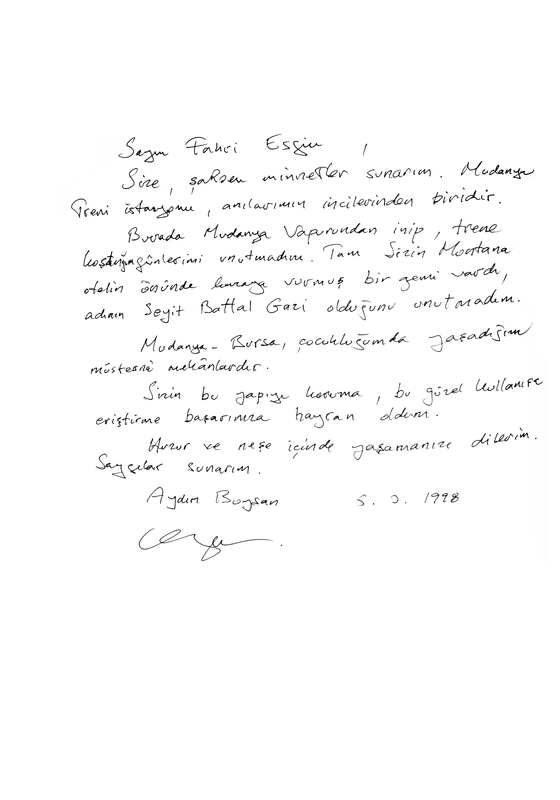 Sayın Fahri Esgin,
Size, şahsen minnetler sunarım. Mudanya
Treni istasyonu, anılarımın incilerinden biridir.
Burada Mudanya Vapurundan inip, trene
koştuğum günlerimi unutmadım. Tam Sizin Montana
otelin önünde karaya vurmuş bir gemi vardı,
adının Seyit Battal Gazi olduğunu unutmadım.
Mudanya - Bursa, çocukluğumda yaşadığım
müstesnâ mekânlardır.
Sizin bu yapıyı koruma, bu güzel kullanışa
eriştirme başarınıza hayran oldum.
Huzur ve neşe içinde yaşamanızı dilerim.
Saygılar sunarım.
Aydın Boysan 5. 1998